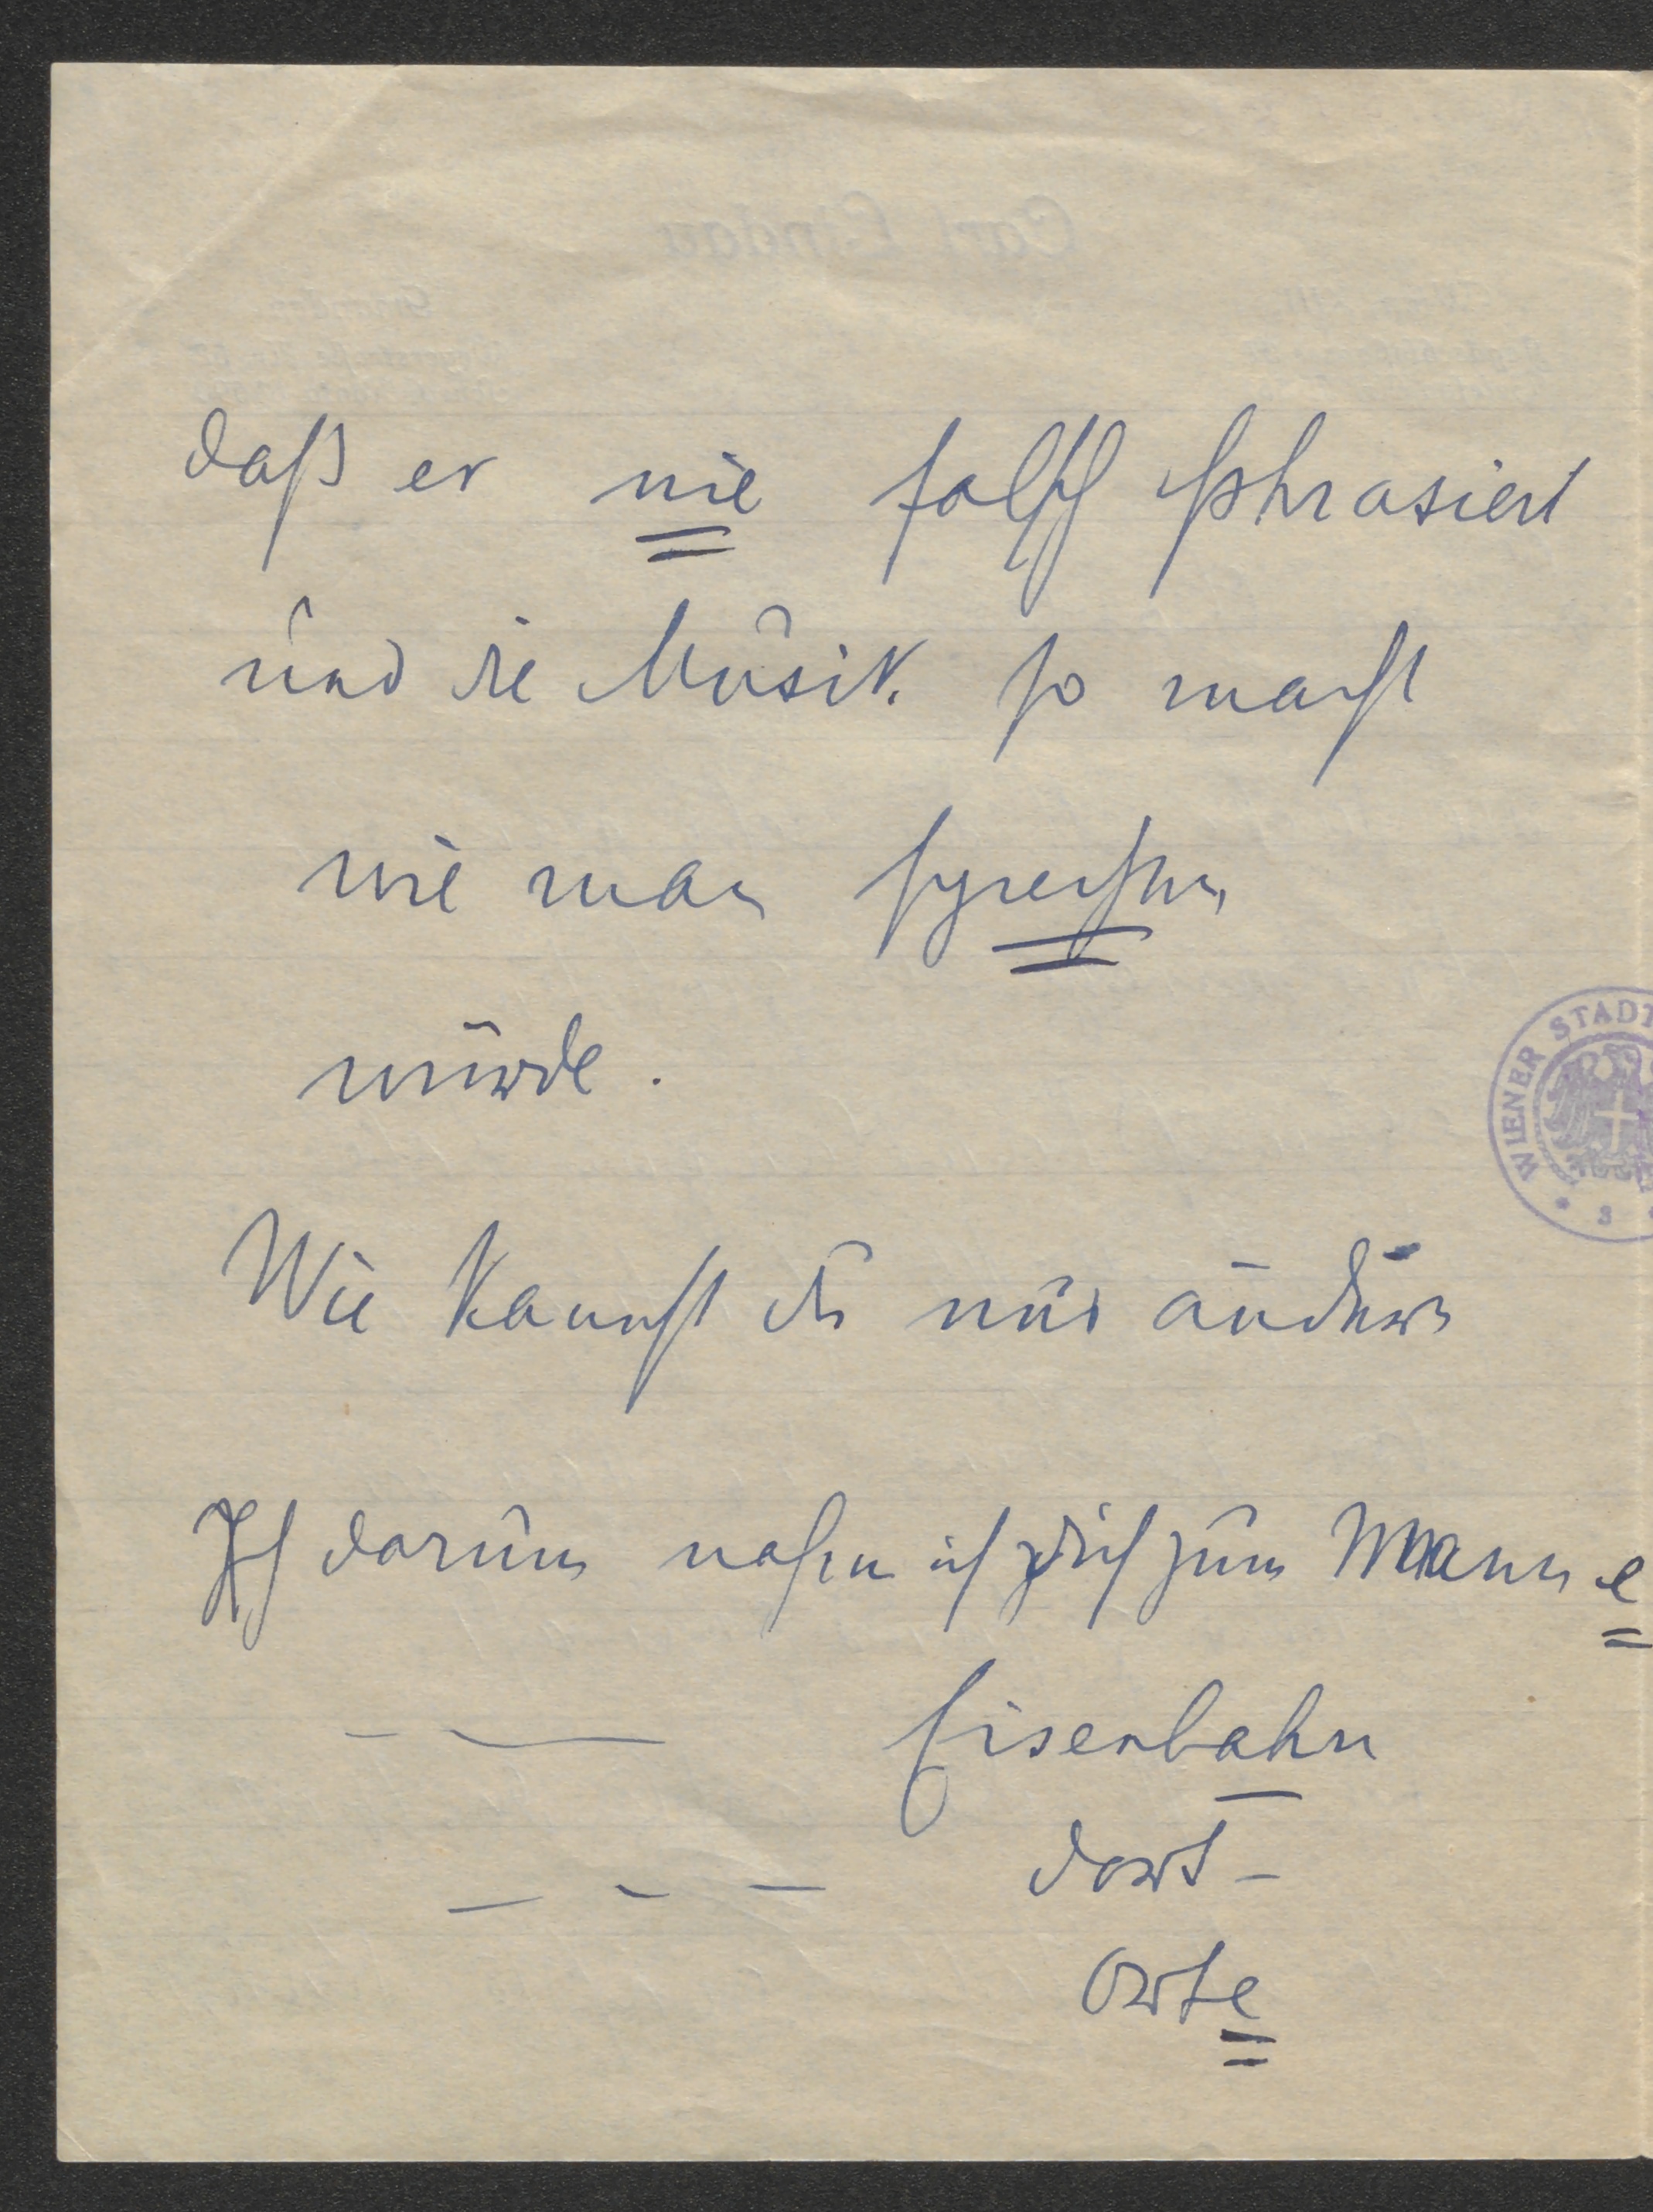 daß er nie falsch phrasiert
und die Musik so macht
wie man sprechen
würde.
WIENER STADT
Wie kannst du nur ändern
Ich darum nahm ich dich zum Manne
— — Eisenbahn
— — — dort —
Orte